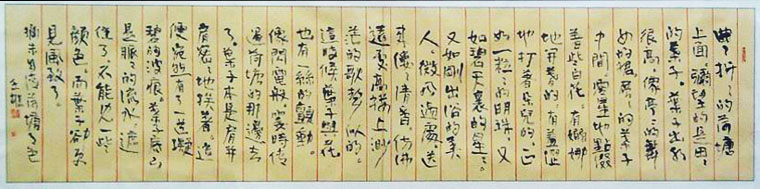 曲々折々的荷塘
上面，彌望的是田々
的葉子。葉子出水
很高，像亭々的舞
女的裙。層々的葉子
中間，零星地點綴
着些白花，有嬝娜
地開着的，有羞澀
地打着朵兒的；正
如一粒々的明珠，又
如碧天裏的星々，
又如剛出浴的美
人。微風過處，送
來縷々清香，仿佛
遠處高樓上渺
茫的歌聲似的。
這時候葉子與花
也有一絲的顫動，
像閃電般，霎時傳
過荷塘的那邊去
了。葉子本是肩并
肩密々地挨着，這
便宛然有了一道凝
碧的波痕。葉子底下
是脈々的流水，遮
住了，不能見一些
顏色；而葉子卻更
見風致了。
荷塘月色